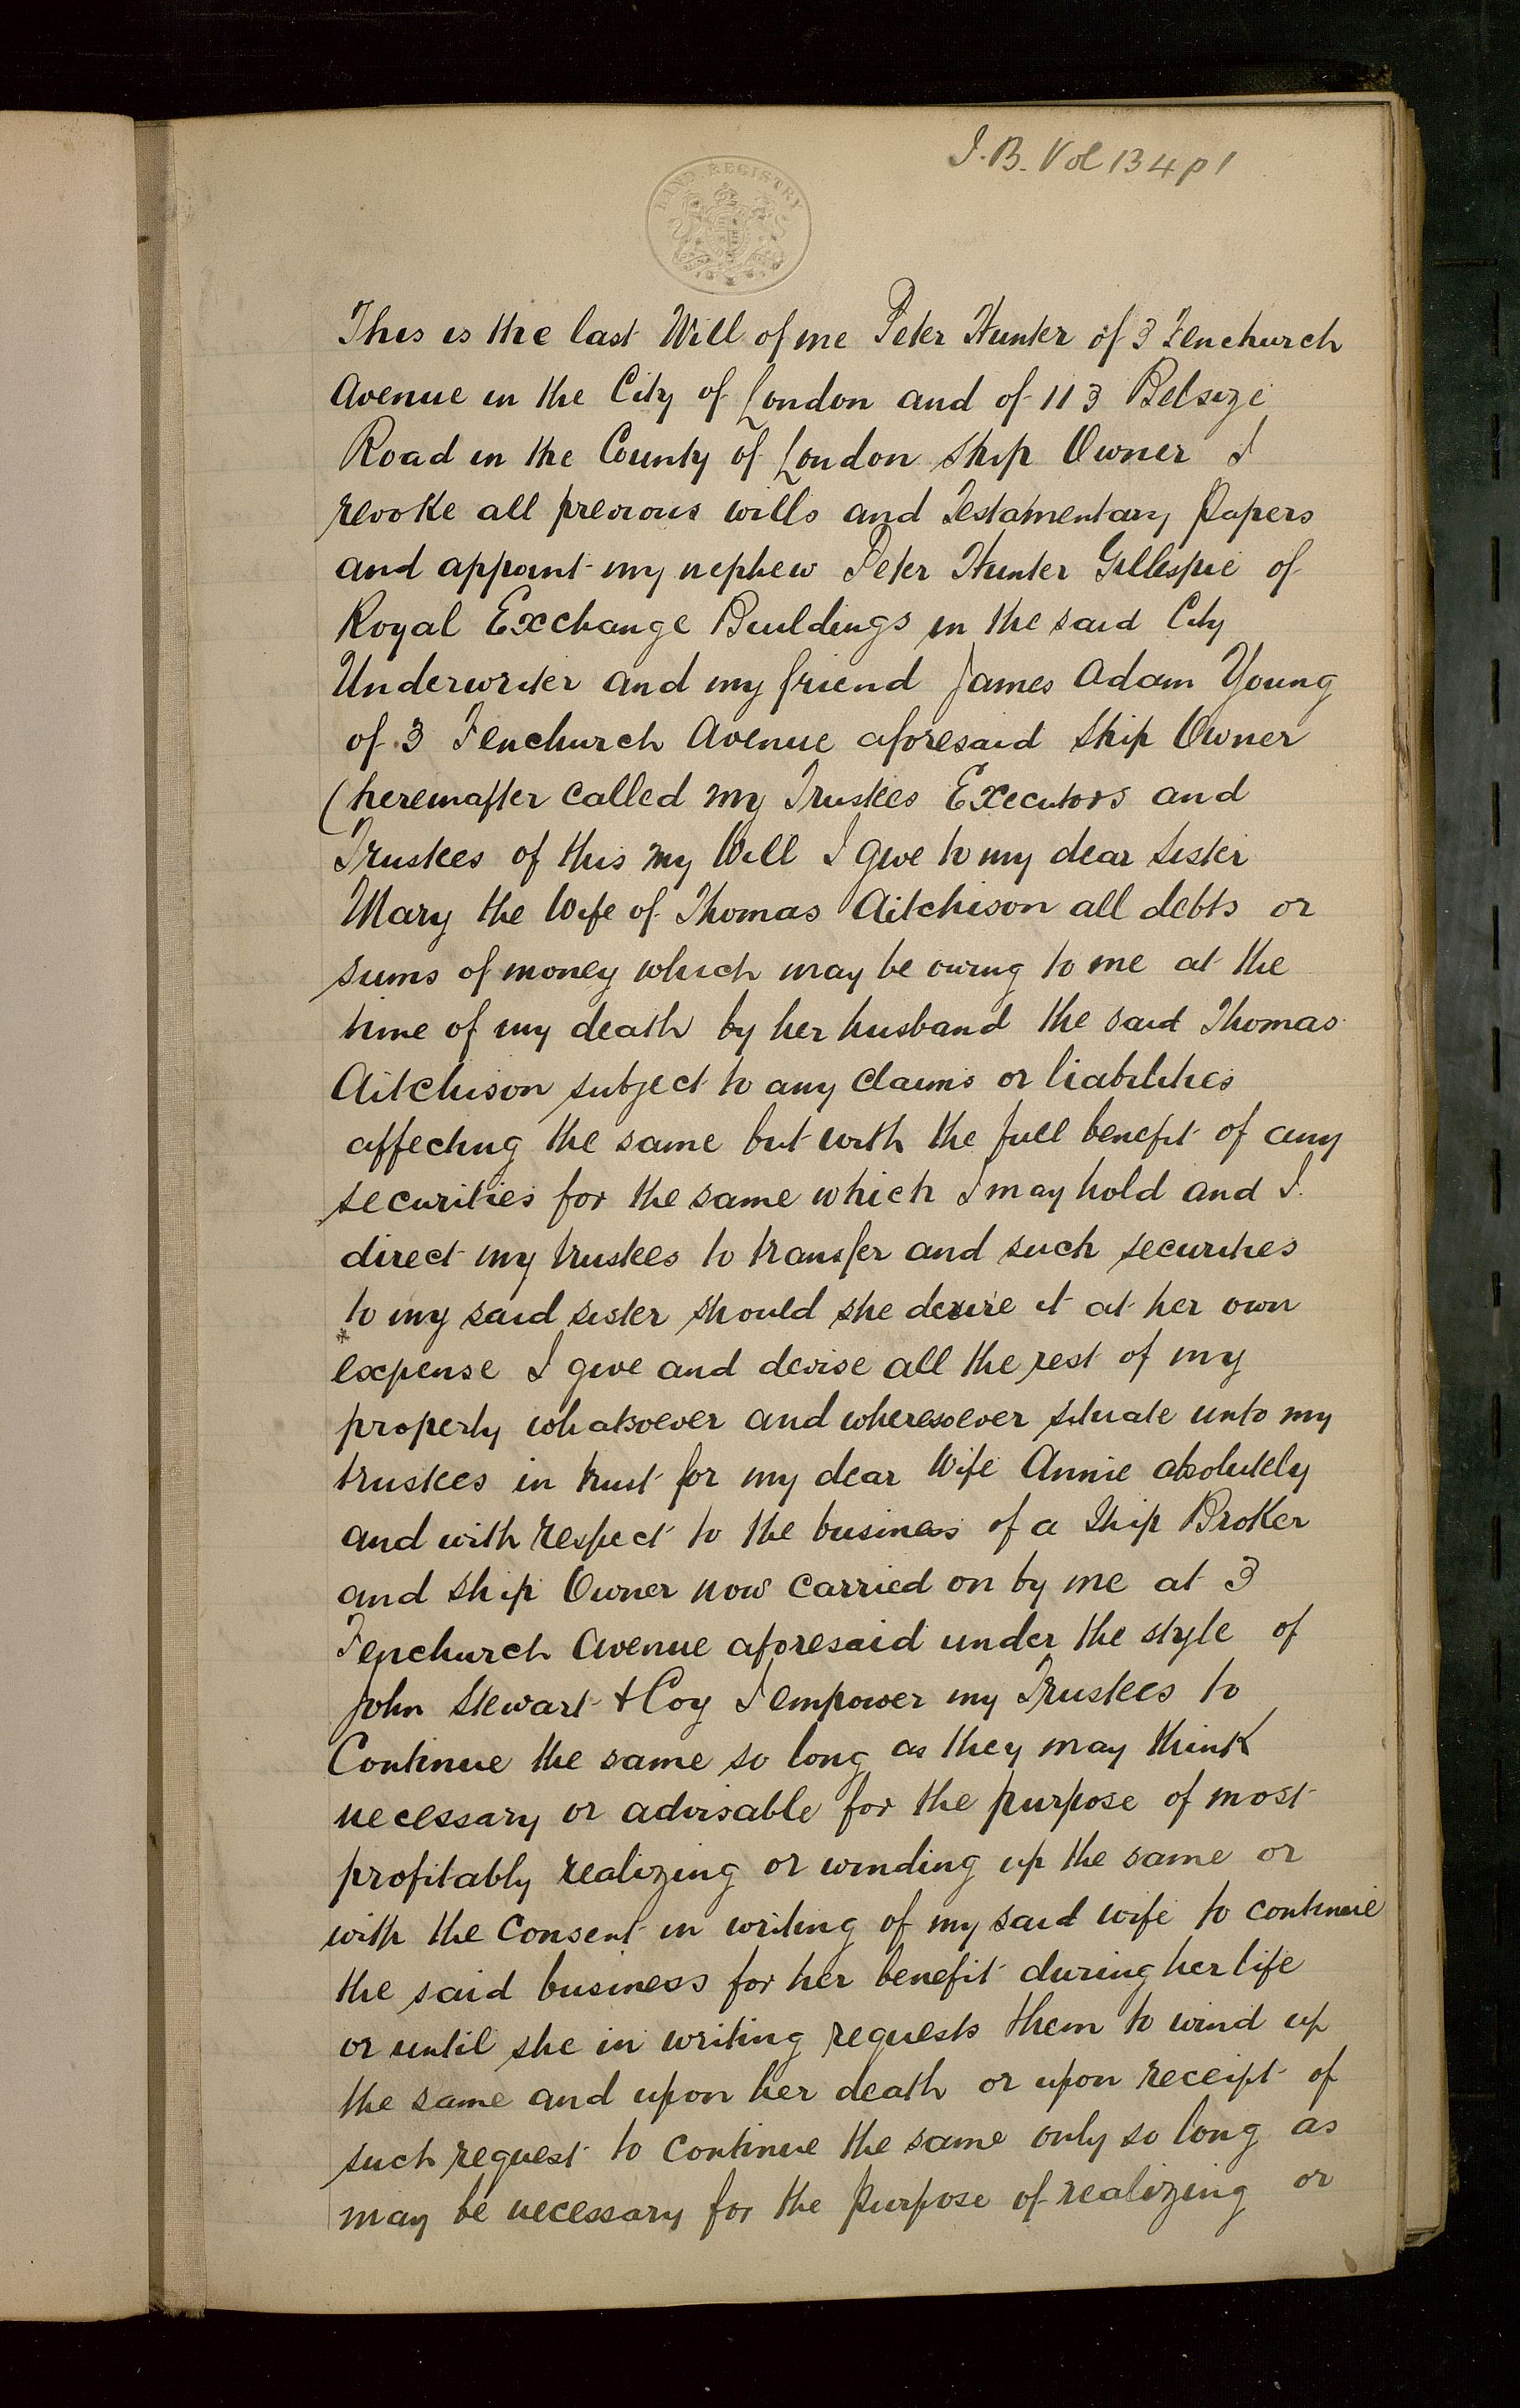 I.B. Vol 134 p 1
LAND REGISTRY
This is the last Will of me Peter Hunter of 3 Fenchurch
Avenue in the City of London and of 113 Belsize
Road in the County of London Ship Owner I
revoke all previous wills and Testamentary Papers
and appoint my nephew Peter Hunter Gillespie of
Royal Exchange Buildings in the said City
Underwriter and my friend James Adam Young
of 3 Fenchurch Avenue aforesaid Ship Owner
(hereinafter called my Trustees Executors and
Trustees of this my Will I give to my dear sister
Mary the Wife of Thomas Aitchison all debts or
sums of money which may be owing to me at the
time of my death by her husband the said Thomas
Aitchison subject to any claims or liabilities
affecting the same but with the full benefit of any
securities for the same which I may hold and I
direct my trustees to transfer and such securities
to my said sister should she desire it at her own
*
expense I give and devise all the rest of my
property whatsoever and wheresoever situate unto my
trustees in trust for my dear Wife Annie absolutely
and with respect to the business of a Ship Broker
and Ship Owner now carried on by me at 3
Fenchurch Avenue aforesaid under the style of
John Stewart & Coy I empower my Trustees to
Continue the same so long as they may think
necessary or advisable for the purpose of most
profitably realizing or winding up the same or
with the consent in writing of my said wife to continue
the said business for her benefit during her life
or until she in writing requests them to wind up
the same and upon her death or upon receipt of
such request to continue the same only so long as
may be necessary for the purpose of realizing or